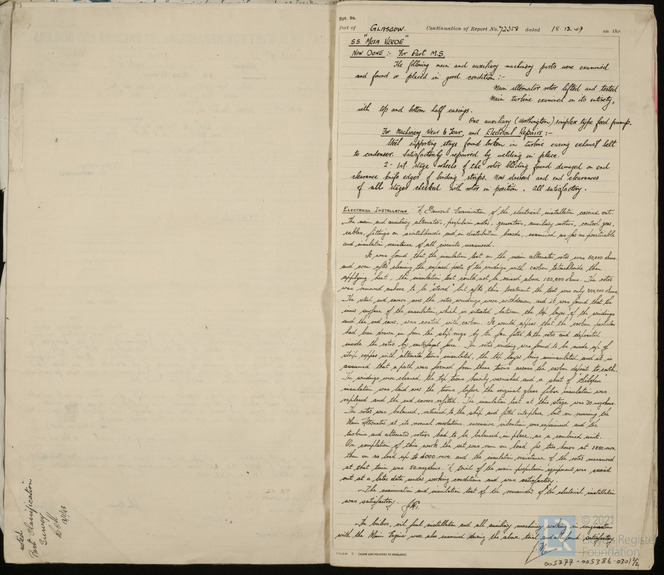 Rpt. 9a.
Port of GLASGOW Continuation of Report No. 72358 dated 18.12.47 on the
S.S. "MESA VERDE"
NOW DONE :- For Part M.S.
The following main and auxiliary machinery parts were examined
and found or placed in good condition :-
Main alternator rotor lifted and tested
Main turbine examined in its entirety,
with top and bottom half casings.
One auxiliary (Worthington) simplex type feed pump.
For Machinery Wear & Tear, and Electrical Repairs :-
Steel supporting stays found broken in turbine casing exhaust belt
to condenser. Satisfactorily repaired by welding in place.
2 - 1st stage wheels of the rotor blading found damaged on end
clearance knife edges of binding strips. Now dressed and end clearances
of all stages checked with rotor in position. All satisfactory.
ELECTRICAL INSTALLATION. A General Examination of the electrical installation carried out.
The main and auxiliary alternators, propulsion motor, generators, auxiliary motors, control gear,
cables, fittings on switchboards and in distribution boards, examined as far as practicable
and insulation resistance of all circuits measured.
It was found that the insulation test on the main alternator rotor was
and even after cleaning the exposed parts of the windings with carbon tetrachloride then
applying heat, the insulation test could not be raised above 100,000 ohms. The rotor
was removed ashore to be but after this treatment the test was only ohms.
The steel end covers over the rotor windings were withdrawn and it was found that the
inner surface of the insulation which is situated between the top layer of the windings
and the end cover, was coated with carbon. It would appear that the carbon particles
had been drawn in from the slip rings by the fan fitted to the rotor and deposited
inside the rotor by centrifugal force. The rotor winding was found to be made up of
strip copper with alternate turns insulated, the top layer being uninsulated and it is
assumed that a path was formed from these turns across the carbon deposit to earth.
The windings were cleaned, the top turns heavily varnished and a sheet of
insulation was laid over the turns before the original glass fibre insulation was
replaced and the end covers refitted. The insulation test at this stage was 20 megohms.
The rotor was balanced, returned to the ship and fitted into place but on running the
Main Alternator at its normal revolutions excessive vibration was experienced and the
turbine and alternator rotors had to be balanced in place, as a combined unit.
On completion of this work the set was run on load for two hours at
then on no load up to and the insulation resistance of the rotor measured
at that time was 50 megohms. A trial of the main propulsion equipment was carried
out at a later date, under working conditions and was satisfactory.
The examination and insulation test of the remainder of the electrical installation
was satisfactory.
The boilers, oil fuel installation and all auxiliary machinery working in conjunction
with the Main Engines was also examined during the above trial and all found satisfactory.
noted
Port Classification
Surveys
© 2021
Lloyd's Register
Foundation
005377-005386-0301 1/2